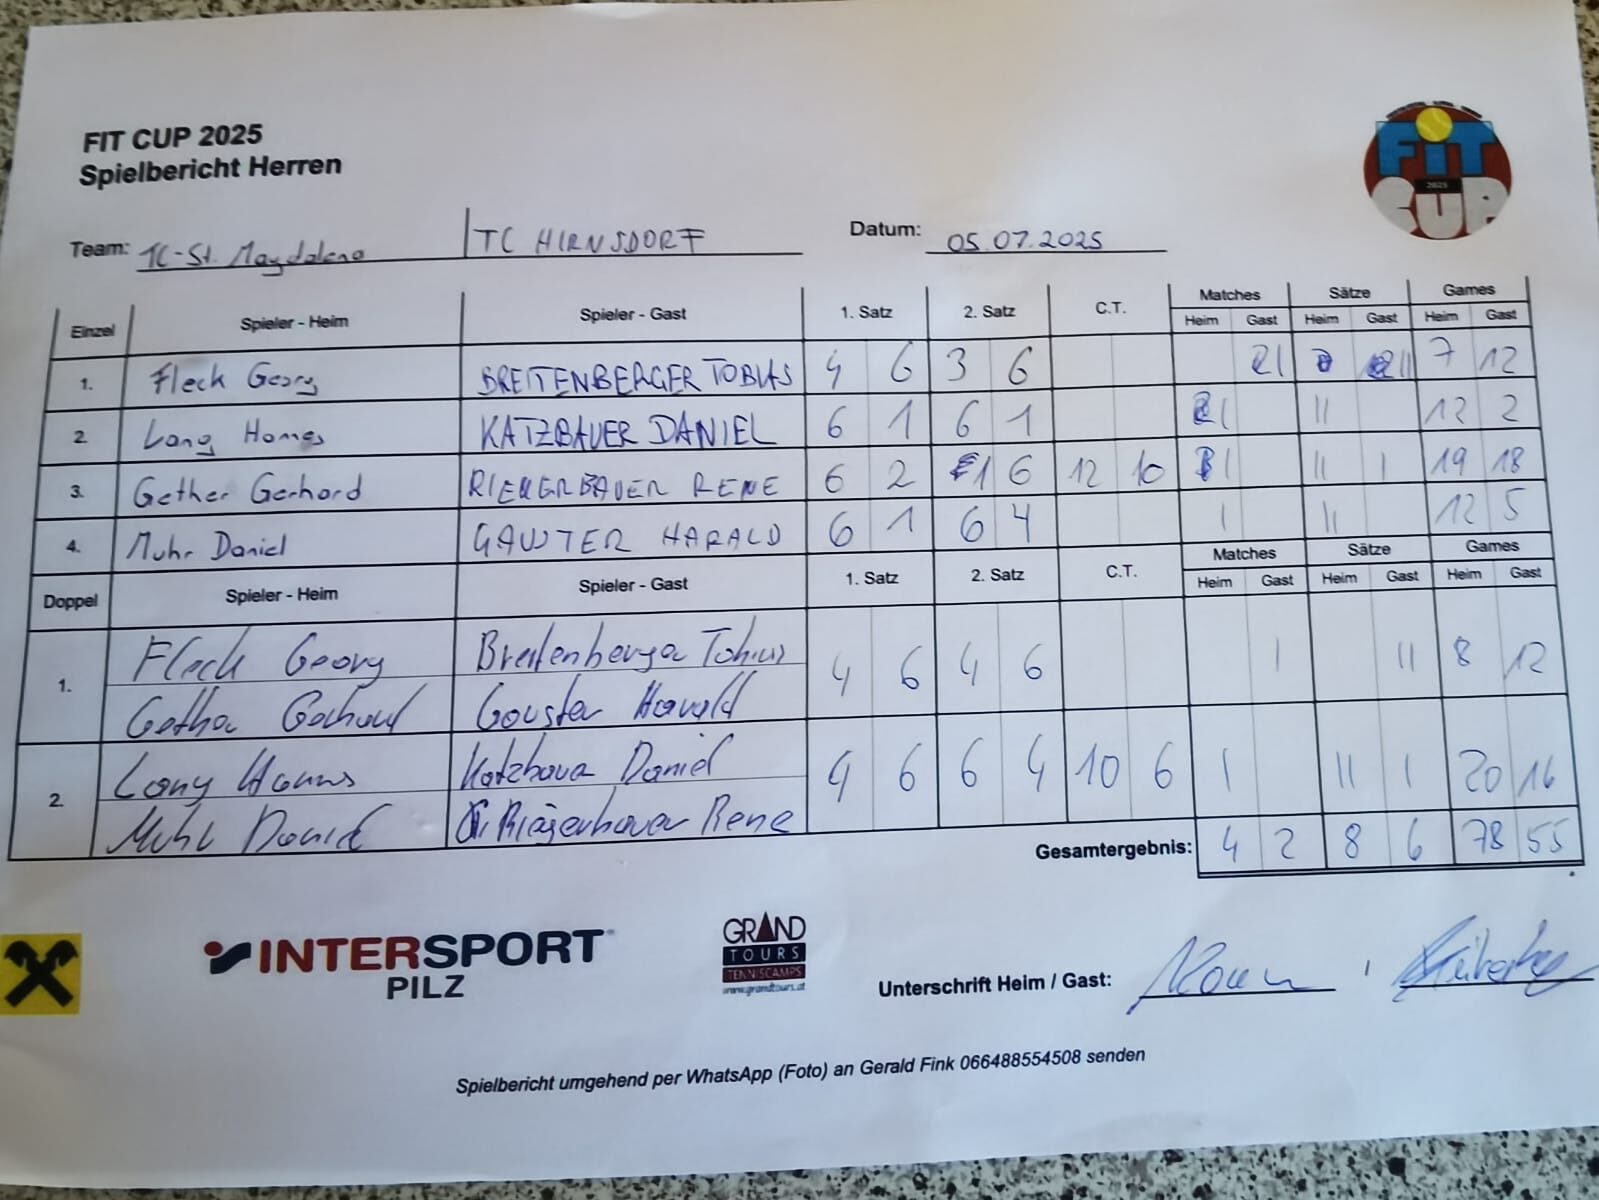 FIT CUP 2025
Spielbericht Herren
FIT
2025
CUP
Team: TC-St. Magdalena TC HIRNSDORF Datum: 05.07.2025
Einzel Spieler - Heim Spieler - Gast 1. Satz 2. Satz C.T. Matches Sätze Games
Heim Gast Heim Gast Heim Gast
1. Fleck Georg BREITENBERGER TOBIAS 4 6 3 6 | || 7 12
2. Lang Hannes KATZBAUER DANIEL 6 1 6 1 | || 12 2
3. Gether Gerhard RIEGERBAUER RENE 6 2 1 6 12 10 | || | 19 18
4. Muhr Daniel GAUSTER HARALD 6 1 6 4 | || 12 5
Doppel Spieler - Heim Spieler - Gast 1. Satz 2. Satz C.T. Matches Sätze Games
Heim Gast Heim Gast Heim Gast
1. Fleck Georg Breitenberger Tobias 4 6 4 6 | || 8 12
Gether Gerhard Gauster Harald
2. Lang Hannes Katzbauer Daniel 4 6 6 4 10 6 | || | 20 16
Muhr Daniel Riegerbauer Rene
Gesamtergebnis: 4 2 8 6 78 55
INTERSPORT
PILZ
GRAND
TOURS
TENNISCAMPS
www.grandtours.at
Unterschrift Heim / Gast:
Spielbericht umgehend per WhatsApp (Foto) an Gerald Fink 066488554508 senden